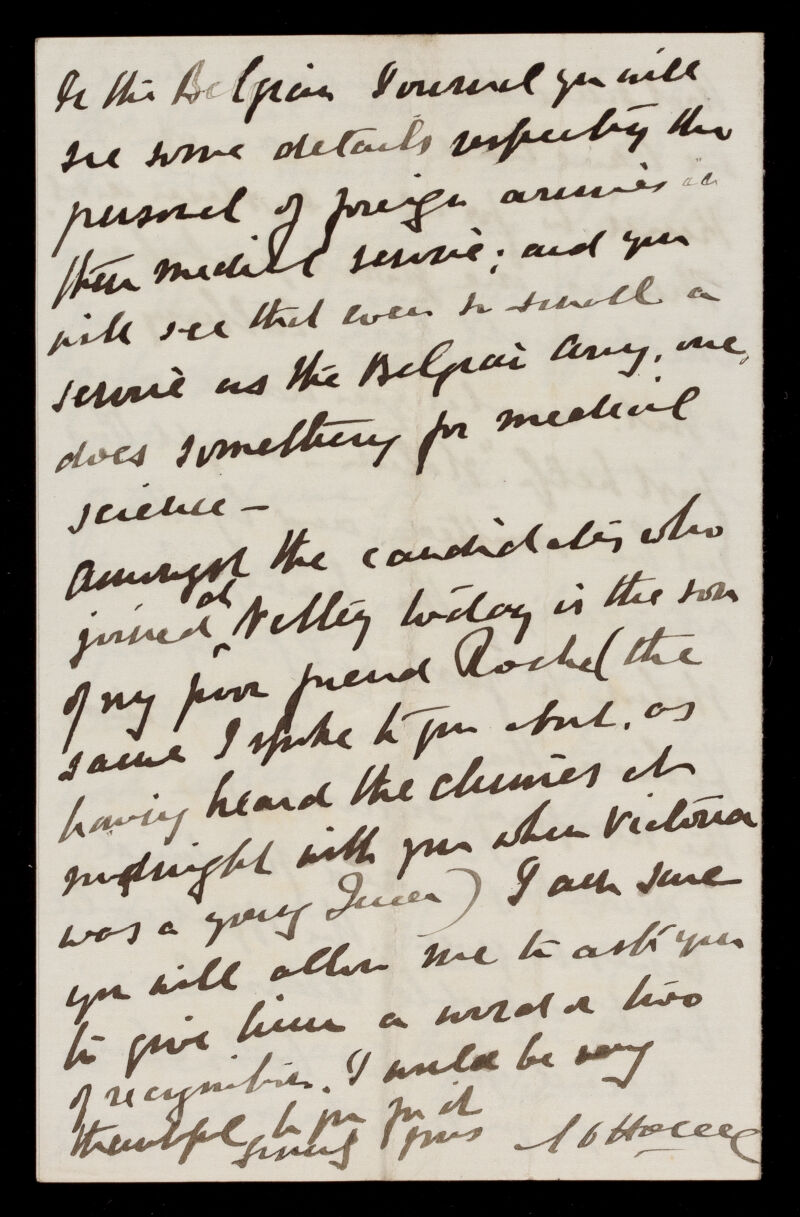 In the Belgian Journal you will
see some details respecting the
personel of foreign armies in
their medical service; and you
will see that even in so small a
service as the Belgian Army, one
does something for medical
science —
Amongst the candidates who
joined at Netley today is the son
of my poor friend Roche (the
same I spoke to you about, as
having heard the chimes at
midnight with you when Victoria
was a young Queen) I am sure
you will allow me to ask you
to give him a word or two
of recognition. I would be very
thankful to you for it
Sincerely yours